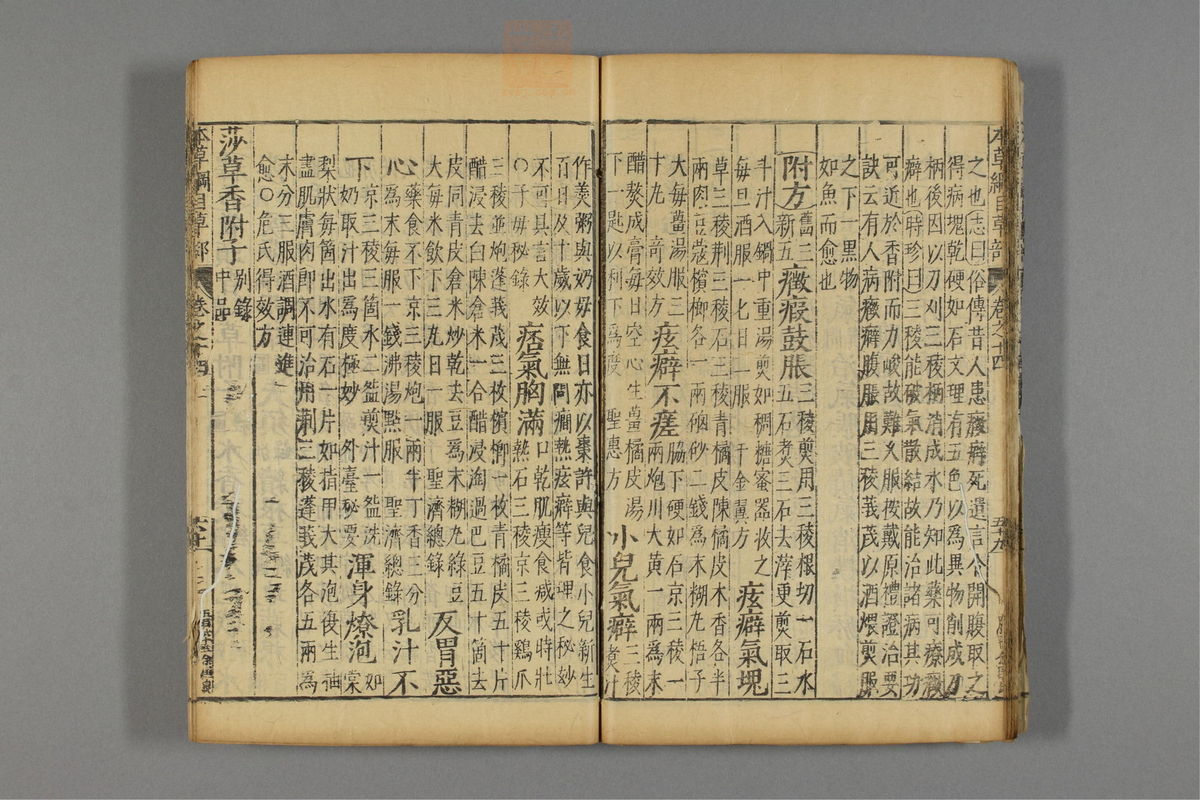 本草綱目草部 卷之十四
之也志曰俗傳昔人患癥癖死遺言令開腹取之
得病塊乾硬如石文理有五色以爲異物削成刀
柄後因以刀刈三稜柄消成水乃知此藥可療癥
癖也時珍曰三稜能破氣散結故能治諸病其功
可近於香附而力峻故難久服按戴原禮證治要
訣云有人病癥癖腹脹用三稜莪茂以酒煨煎服
之下一黑物
如魚而愈也
附方 舊三新五 癥瘕鼓脹 三稜煎用三稜根切一石水
五石煮三石去滓更煎取三
斗汁入鍋中重湯煎如稠糖密器收之
每旦酒服一匕日二服 千金翼方 痃癖氣塊
草三稜荆三稜青橘皮陳橘皮木香各半
兩肉豆蔻檳榔各一兩硇砂二錢爲末糊丸梧子
大每薑湯服三
十丸 奇効方 痃癖不瘥 脇下硬如石京三稜一
兩炮川大黄一兩爲末
醋熬成膏每日空心生薑橘皮湯
下一匙以利下爲度 聖惠方 小兒氣癖 三稜
煮汁
作羹粥與奶母食日亦以棗許與兒食小兒新生
百日及十歲以下無問癎熱痃癖等皆理之秘妙
不可具言大效
○子母秘錄 痞氣胸滿 口乾肌瘦食減或時壯
熱石三稜京三稜鷄爪
三稜並炮蓬莪茂三枚檳榔一枚青橘皮五十片
醋浸去白陳倉米一合醋浸淘過巴豆五十箇去
皮同青皮倉米炒乾去豆爲末糊丸綠豆
大每米飲下三丸日一服 聖濟總錄 反胃惡
心 藥食不下京三稜炮一兩半丁香三分
爲末每服一錢沸湯點服 聖濟總錄 乳汁不
下 京三稜三箇水二盌煎汁一盌洗
奶取汁出爲度極妙 外臺秘要 渾身燎泡 如
棠
梨狀每箇出水有石一片如指甲大其泡復生抽
盡肌膚肉即不可治用荆三稜蓬莪茂各五兩爲
末分三服酒調連進
愈○危氏得效方
莎草香附子 别錄
中品
本草綱目草部 卷之十四